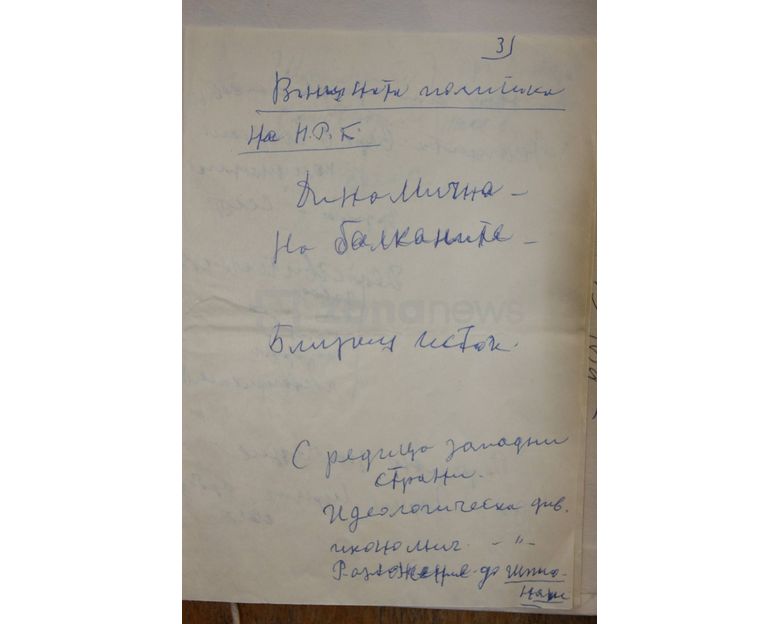 3)
Външната политика
на Н.Р.Б.
Динамична -
На балканите -
xonanews
Близкия исток.
С редица западни
страни.
Идеологическа див.
икономич. - " -
до шпио-
наж